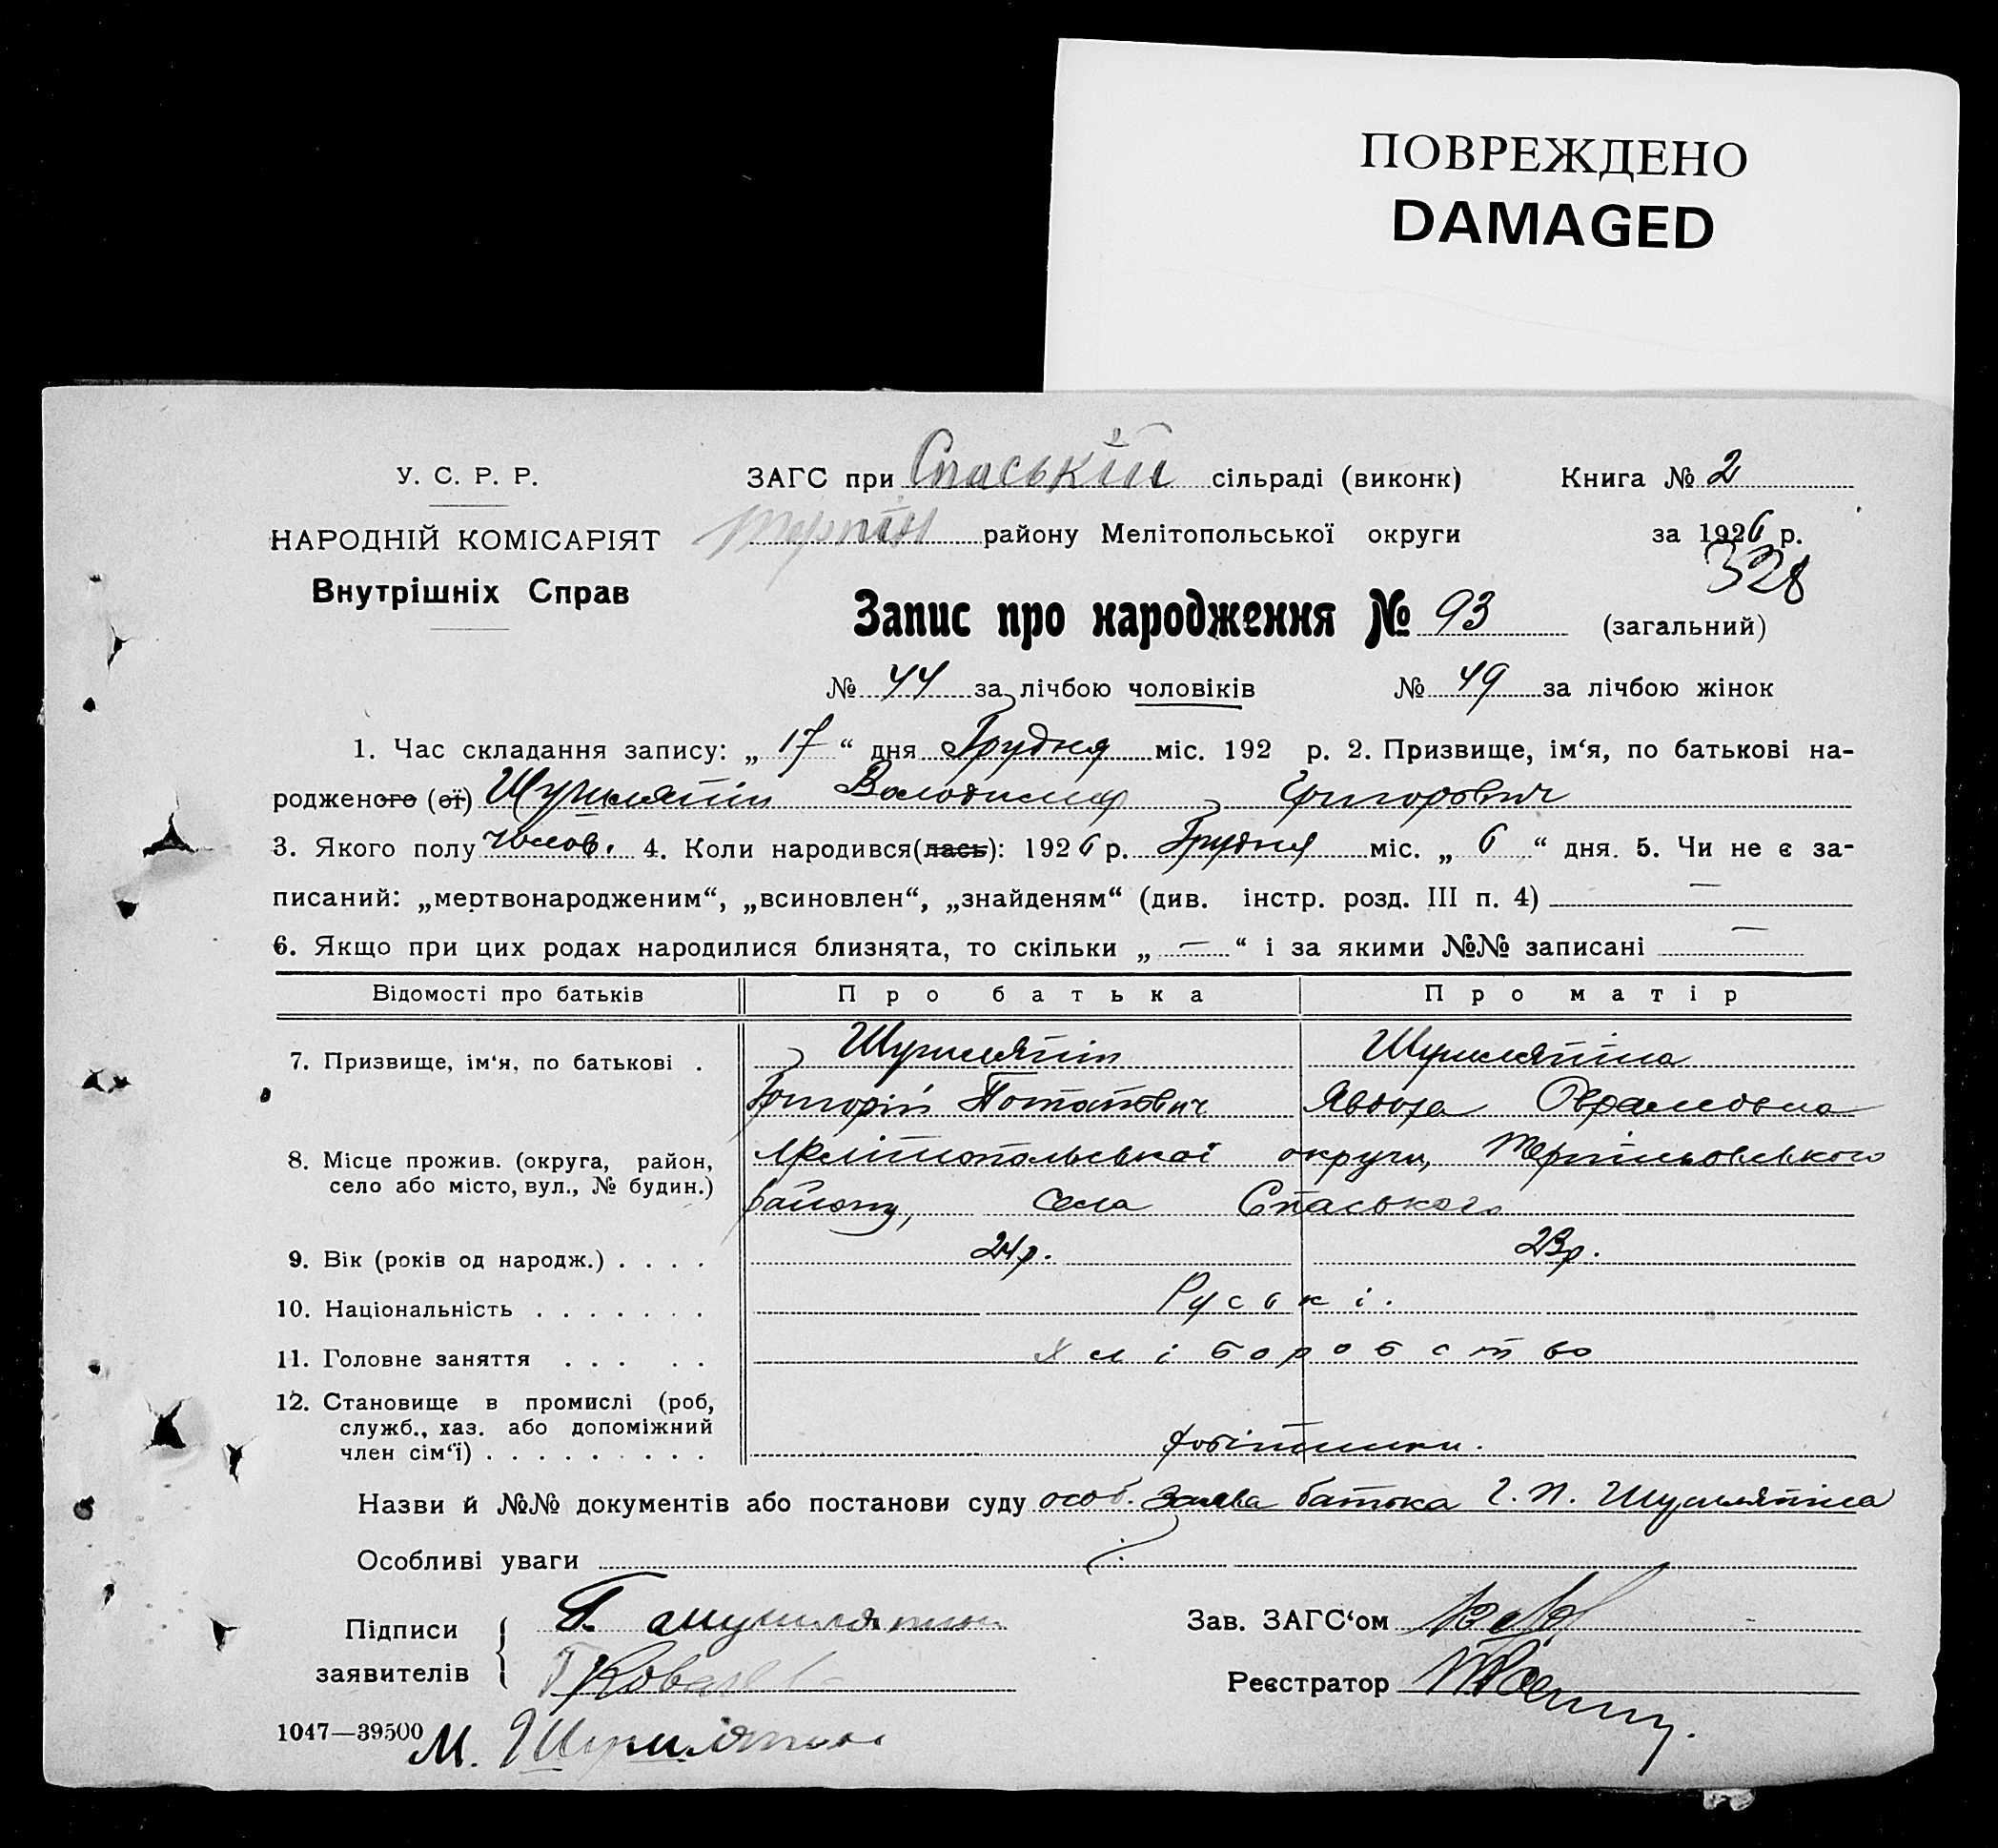 ПОВРЕЖДЕНО
DAMAGED
У. С. Р. Р.
НАРОДНІЙ КОМІСАРІЯТ
Внутрішніх Справ
ЗАГС при Спаській сільраді (виконк) Книга № 2
Терпін району Мелітопольської округи за 1926 р.
328
Запис про народження № 93 (загальний)
№ 44 за лічбою чоловіків № 49 за лічбою жінок
1. Час складання запису: „ 17 “ дня Грудня міс. 192 р. 2. Призвище, ім‘я, по батькові на-
родженого (ої) Шумляпін Володимир Григорович
3. Якого полу чолов. 4. Коли народився(лась): 1926 р. Грудня міс. „ 6 “ дня. 5. Чи не є за-
писаний: „мертвонародженим“, „всиновлен“, „знайденям“ (див. інстр. розд. III п. 4) —
6. Якщо при цих родах народилися близнята, то скільки „ — “ і за якими №№ записані —
Відомості про батьків Про батька Про матір
7. Призвище, ім‘я, по батькові . Шумляпін Шумляпіна
Григорій Потапович Явдоха Оврамовна
8. Місце прожив. (округа, район, село або місто, вул., № будин.) Мелітопольської округи, Терпіньовського
району, села Спаського
9. Вік (років од народж.) . . . . 24 р. 23 р.
10. Національність . . . . . . . Руські.
11. Головне заняття . . . . . хліборобство
12. Становище в промислі (роб,
служб., хаз. або допоміжний
член сім‘ї) . . . . . . . . .
Назви й №№ документів або постанови суду особ. заява батька Г. П. Шумляпіна
Особливі уваги
Підписи
заявителів
Г. Шумляпин
Ковале
М. Шумляпин
Зав. ЗАГС‘ом
Реєстратор
1047—39500